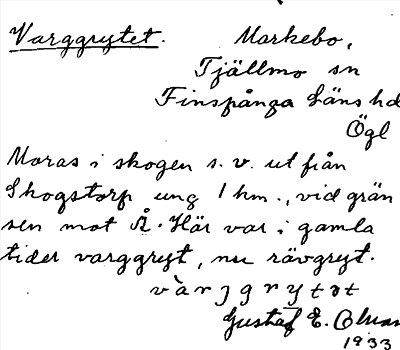 Varggrytet.
Markebo,
Tjällmo sn
Finspånga läns hd
Ögl
Moras i skogen s. v. ut från
Skogstorp ung 1 km., vid grän
sen mot Å. Här var i gamla
tider varggryt, nu rävgryt.
Gustaf E.
1933